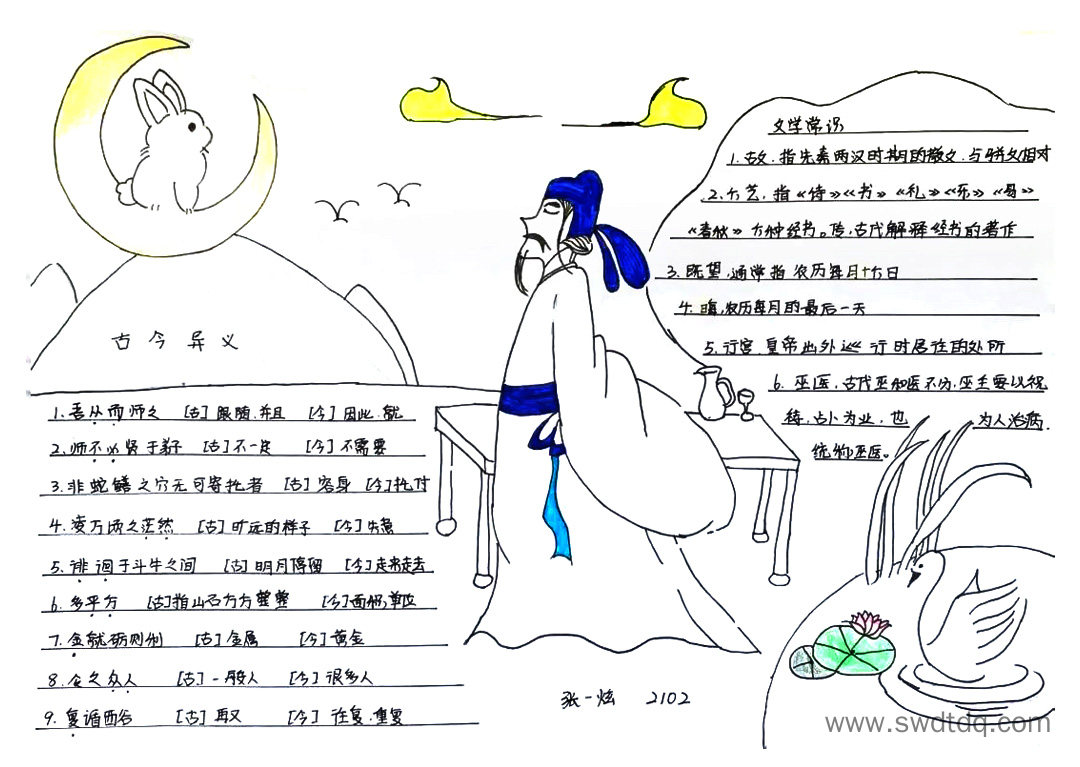 古今异义
1.吾从而师之 [古]跟随,并且 [今]因此,就
2.师不必贤于弟子 [古]不一定 [今]不需要
3.非蛇鳝之穴无可寄托者 [古]容身 [今]托付
4.凌万顷之茫然 [古]旷远的样子 [今]失意
5.徘徊于斗牛之间 [古]明月停留 [今]走来走去
6.多平方 [古]指山石方方整整 [今]面积,单位
7.金就砺则利 [古]金属 [今]黄金
8.今之众人 [古]一般人 [今]很多人
9.复循西谷 [古]再又 [今]往复.重复
文学常识
1.古文,指先秦两汉时期的散文,与骈文相对
2.六艺,指《诗》《书》《礼》《乐》《易》
《春秋》六种经书。传,古代解释经书的著作
3.既望,通常指农历每月十六日
4.晦,农历每月的最后一天
5.行宫,皇帝出外巡行时居住的处所
6.巫医,古代巫和医不分,巫主要以祝
祷,占卜为业,也 为人治病.
统称巫医。
张一炫 2102
www.swdtdq.com